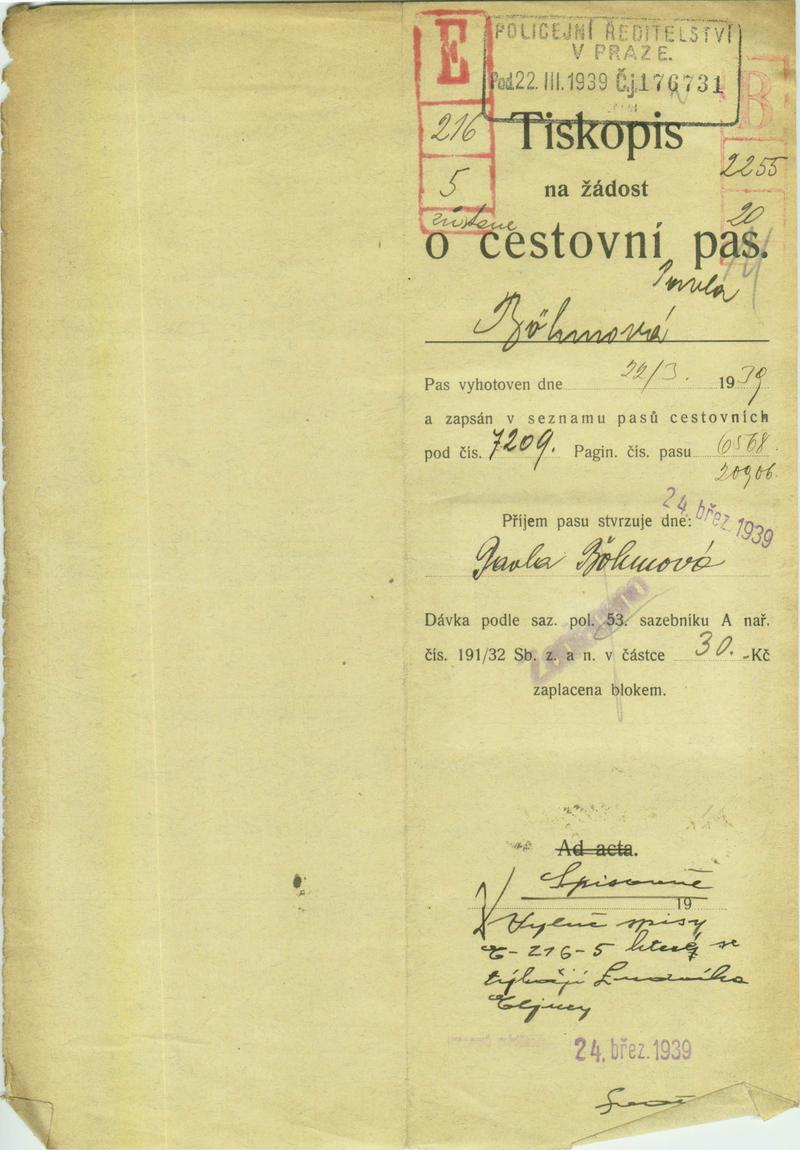 E
POLICEJNÍ ŘEDITELSTVÍ
V PRAZE.
Pod. 22. III. 1939 Čj. 176731
B
216
Tiskopis
2255
5
na žádost
zůstane
20
o cestovní pas.
Pavla
Böhmová
Pas vyhotoven dne 22/3. 1939
a zapsán v seznamu pasů cestovních
pod čís. 7209. Pagin. čís. pasu 6568.
20906.
24. břez. 1939
Příjem pasu stvrzuje dne:
Pavla Böhmová
Dávka podle saz. pol. 53. sazebníku A nař.
čís. 191/32 Sb. z. a n. v částce 30.-Kč
zaplacena blokem.
Ad acta.
Spisovně
19
spisy
E-216-5 které se
týkají Ludvíka
24. břez. 1939